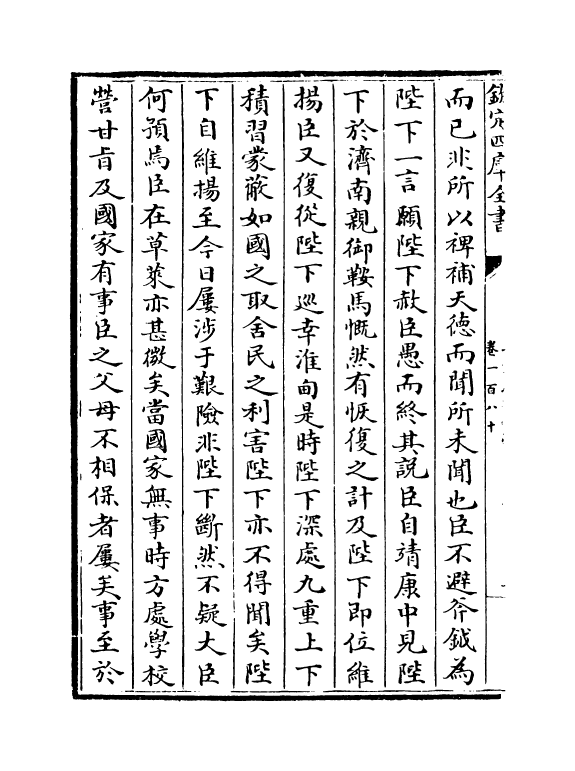 欽定四庫全書
卷一百八十
而已非所以裨補天德而聞所未聞也臣不避斧鉞為
陛下一言願陛下赦臣愚而終其說臣自靖康中見陛
下於濟南親御鞍馬慨然有恢復之計及陛下即位維
揚臣又復從陛下巡幸淮甸是時陛下深處九重上下
積習蒙蔽如國之取舍民之利害陛下亦不得聞矣陛
下自維揚至今日屢涉于艱險非陛下斷然不疑大臣
何預焉臣在草萊亦甚微矣當國家無事時方處學校
營甘旨及國家有事臣之父母不相保者屢矣事至於